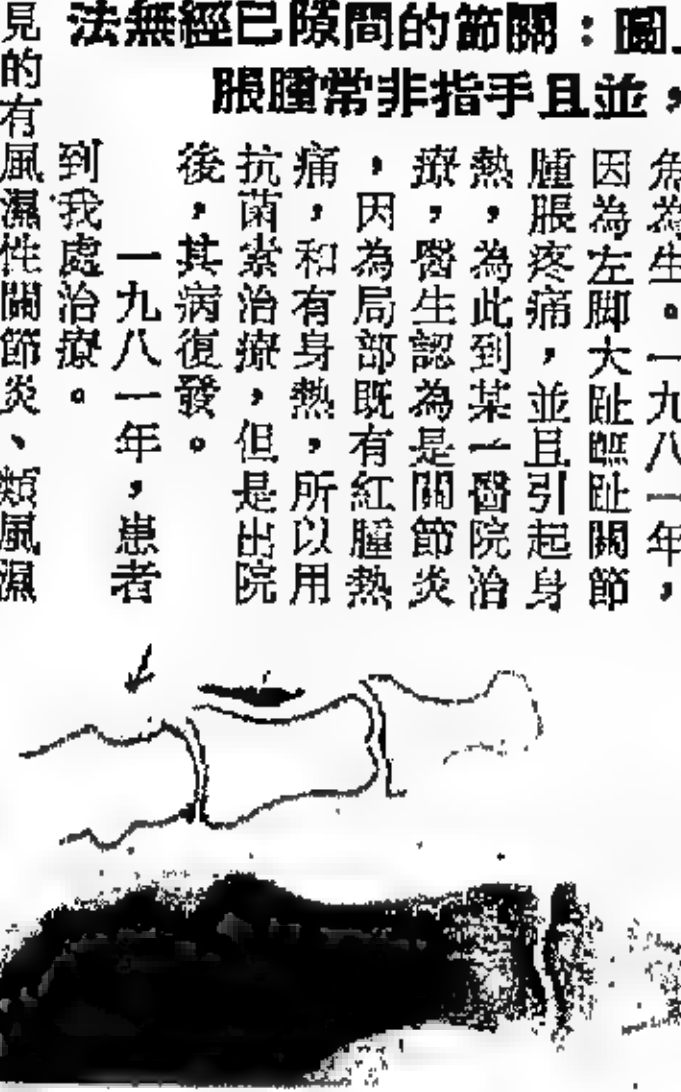 上圖：關節的間隙已經無法
，並且手指非常腫脹
魚為生。一九八一年，
因為左脚大趾蹠趾關節
腫脹疼痛，並且引起身
熱，為此到某一醫院治
療，醫生認為是關節炎
，因為局部既有紅腫熱
痛，和有身熱，所以用
抗菌素治療，但是出院
後，其病復發。
一九八一年，患者
到我處治療。
見的有風濕性關節炎、類風濕